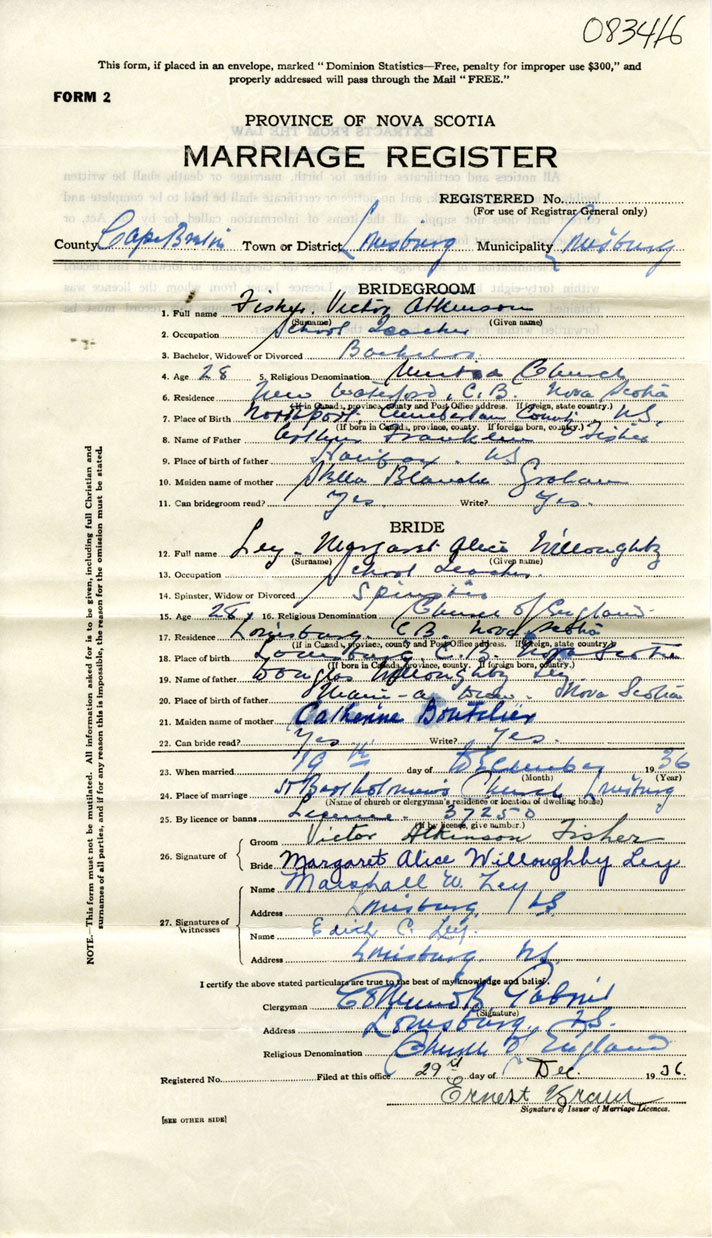 083416
This form, if placed in an envelope, marked "Dominion Statistics—Free, penalty for improper use $300," and
properly addressed will pass through the Mail "FREE."
FORM 2
PROVINCE OF NOVA SCOTIA
MARRIAGE REGISTER
REGISTERED No.
(For use of Registrar General only)
County Cape Breton Town or District Louisburg Municipality Louisburg
BRIDEGROOM
1. Full name Fisher. Victor Atkinson
(Surname) (Given name)
2. Occupation School Teacher
3. Bachelor, Widower or Divorced Bachelor
4. Age 28 5. Religious Denomination United Church
6. Residence New Waterford, C.B. Nova Scotia
(If in Canada, province, county and Post Office address. If foreign, state country.)
7. Place of Birth Northport Cumberland County N.S.
(If born in Canada, province, county. If foreign born, country.)
8. Name of Father Arthur Franklin Fisher
9. Place of birth of father Halifax. N.S.
10. Maiden name of mother Stella Blanche Graham
11. Can bridegroom read? Yes. Write? Yes.
BRIDE
12. Full name Ley - Margaret Alice Willoughby
(Surname) (Given name)
13. Occupation School Teacher.
14. Spinster, Widow or Divorced Spinster
15. Age 28 16. Religious Denomination Church of England
17. Residence Louisburg. C.B. Nova Scotia
(If in Canada, province, county and Post Office address. If foreign, state country.)
18. Place of birth Louisburg C.B. Nova Scotia
(If born in Canada, province, county. If foreign born, country.)
19. Name of father Douglas Willoughby Ley
20. Place of birth of father Main-a-Dieu. Nova Scotia
21. Maiden name of mother Catherine Boutilier
22. Can bride read? Yes Write? Yes.
23. When married 19th day of December 1936
(Month) (Year)
24. Place of marriage St Bartholomew's Church Louisburg
(Name of church or clergyman's residence or location of dwelling house)
25. By licence or banns Licence. 37250
(If by licence, give number.)
26. Signature of
Groom Victor Atkinson Fisher
Bride Margaret Alice Willoughby Ley
27. Signatures of Witnesses
Name Marshall W. Ley
Address Louisburg N.S.
Name Edith C. Ley.
Address Louisburg. N.S.
I certify the above stated particulars are true to the best of my knowledge and belief.
Clergyman
(Signature)
Address Louisburg, N.S.
Religious Denomination Church of England
Registered No. Filed at this office 29th day of Dec. 1936.
Ernest
Signature of Issuer of Marriage Licences.
[SEE OTHER SIDE]
NOTE.—This form must not be mutilated. All information asked for is to be given, including full Christian and
surnames of all parties, and if for any reason this is impossible, the reason for the omission must be stated.